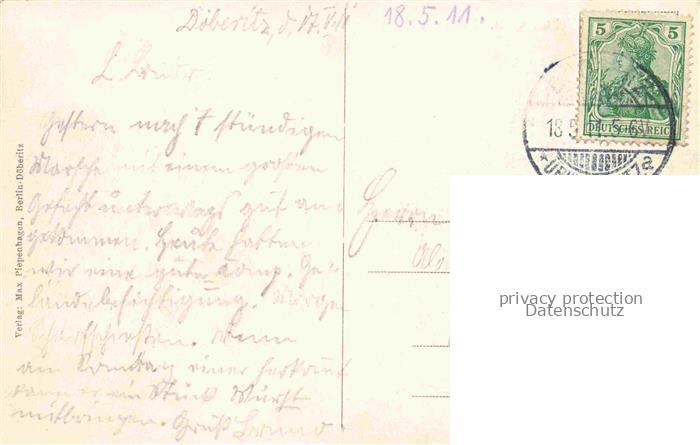 Döberitz, d. 17.V.11
18.5.11.
5 5
DEUTSCHES REICH
18 5 11 5-6
Gestern nach 7 stündigen
Marsche mit einem großen
Gefecht unterwegs gut an-
gekommen. Heute hatten
wir eine gute Komp. Ge-
ländebesichtigung. Morgen
Scharfschießen. Wenn
am Sonntag einer herkommt
kann er ein Stück Wurst
mitbringen. Gruß
Herrn
Verlag: Max Piepenhagen, Berlin-Döberitz
privacy protection
Datenschutz